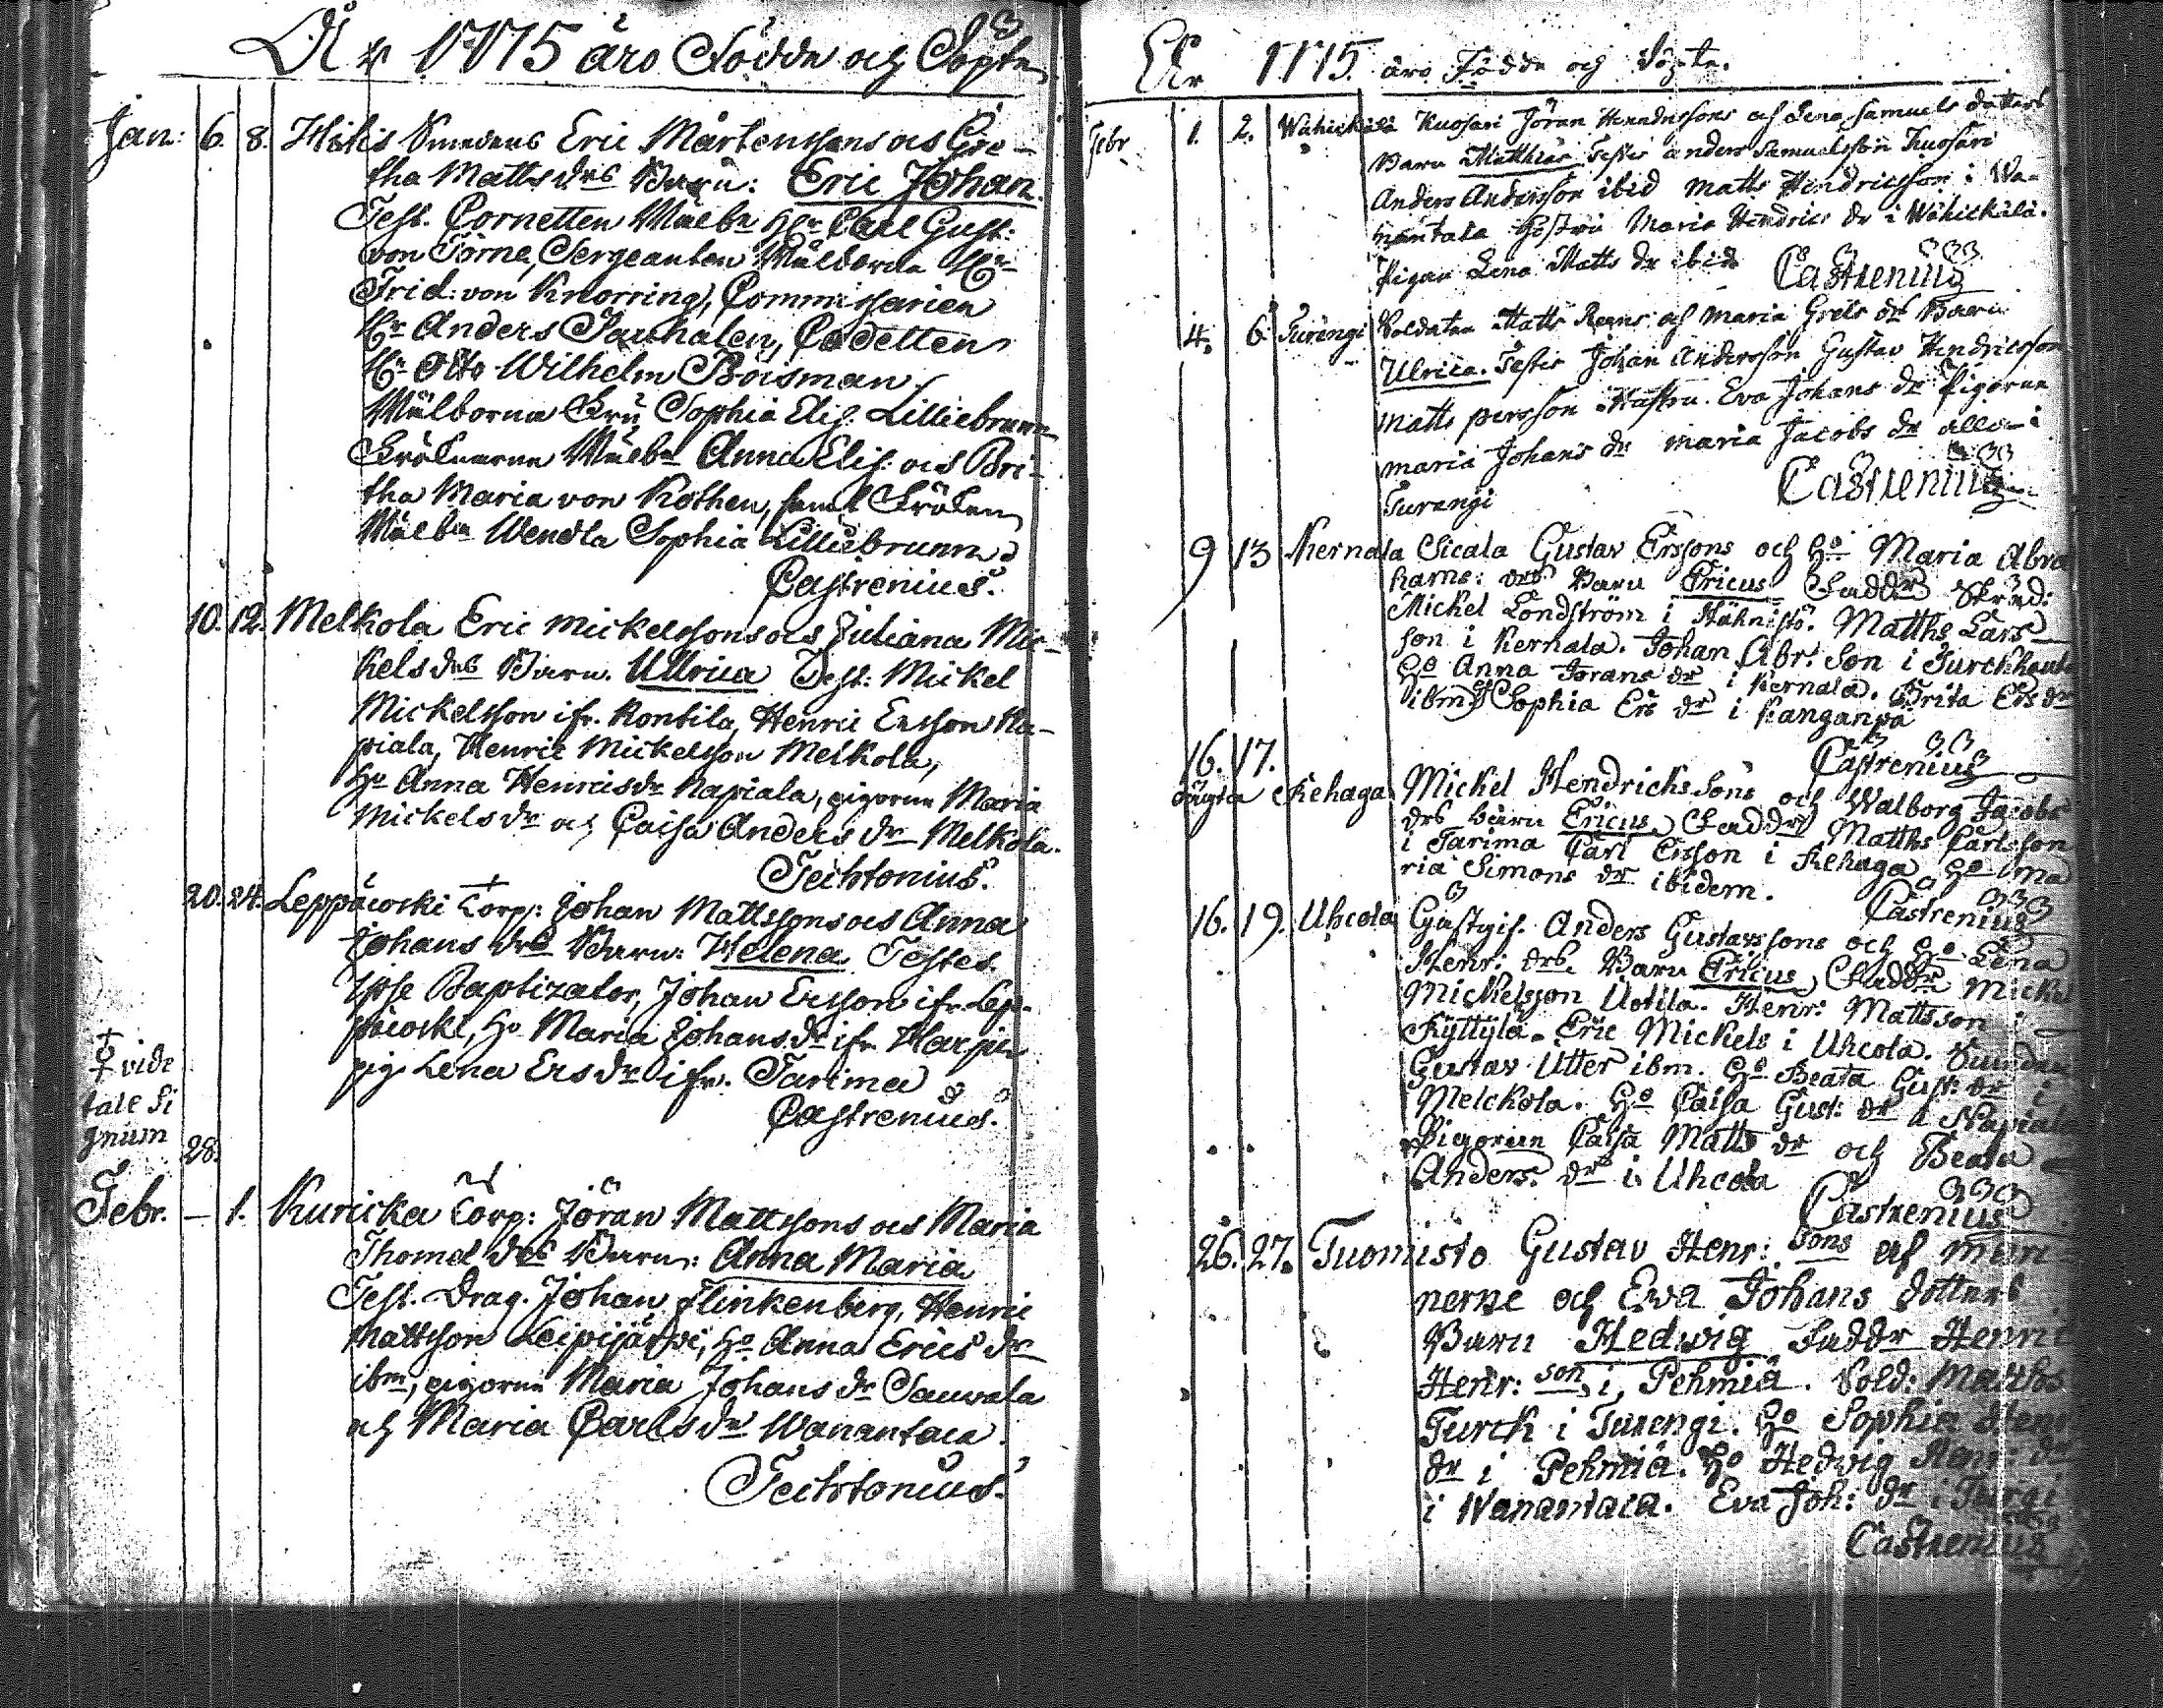 År 1775 äro Födde och Döpte
Jan: 6. 8. Hitis Smedens Eric Mårtenssons och Gre-
tha Matts drs Barn: Eric Johan.
Test. Cornetten Wälbn Hr Carl Gust:
von Törne, Sergeanten Wälborne Hr
Frid: von Knorring, Commissarien
Hr Anders Jauhalen, Cadetten
Hr Otto Wilhelm Boisman
Wälborna Fru Sophia Elis. Lilliebrunn
Fröknarna Wälbn Anna Elis: och Bri-
tha Maria von Köthen, samt Fröken
Wälbn Wendla Sophia Lilliebrunn
Castrenius.
10. 12. Melkola Eric Mickelssons och Juliana Mic-
kels drs Barn. Ullrica Test: Mickel
Mickelsson ifr. Kontila, Henric Ersson Na-
piala, Henric Mickelsson Melkola,
Ho Anna Henricsdr Napiala, pigorna Maria
Mickels dr och Caisa Anders dr Melkola.
Techtonius.
20. 24. Leppäkoski Torp: Johan Mattssons och Anna
Johans drs Barn: Helena Testes.
Ipse Baptizator, Johan Ersson ifr. Lep-
päkoski, Ho Maria Johans dr ifr
pig. Lena Ers dr ifr. Tarima
Castrenius.
vide
tale si
gnum 28.
Febr. — 1. Kuricka Torp: Jöran Mattssons och Maria
Thomæ drs Barn: Anna Maria
Test. Drag. Johan Flinkenberg, Henric
Mattsson Leipijärfvi, Ho Anna Erics dr
ibm, pigorna Maria Johans dr Sauvala
och Maria Carls dr Wanantaca.
Techtonius.
År 1775. äro Födde og Döpte.
Febr 1. 2. Wähickälä Kuosari Jöran Hendrissons och Lena Samuels dotters
Barn Matthias Testes Anders Samuelsson Kuosari
Anders Andersson ibid Matts Hendricsson i Wa-
nantaka Hustru Maria Hendrics dr i Wähickälä.
Pigan Lena Matts dr ibid Castrenius
4. 6 Turengi Soldaten Matts Rems och Maria Grels drs Barn
Ulrica. Testes Johan Andersson Gustav Hendricsson
Matts persson Hustru Eva Johans dr Pigorna
Maria Johans dr Maria Jacobs dr alla i
Turengi Castrenius
9 13 Kernala Sicala Gustav Erssons och Ho Maria Abra
hams: drs Barn Ericus Faddr Skräd:
Mickel Londström i Hähnistö. Matths Lars
son i Kernala. Johan Abr. Son i Turckhauta
Ho Anna Jörans dr i Kernala. Brita Ers dr
ibm Sophia Ers dr i Kanganpä
Castrenius
16. 17.
Kehaga Mickel Hendrichssons och Walborg Jacobs
drs barn Ericus Faddr Matths Carlsson
i Tarima Carl Ersson i Kehaga Ho Ma
ria Simons dr ibidem.
Castrenius
16. 19. Uhcola Gästgif. Anders Gustavssons och Ho Lena
Henr: drs. Barn Ericus, Faddr Mickel
Mickelsson Uotila. Henr: Mattsson i
Kyttylä. Eric Mickels i Uhcola.
Gustav Utter ibm. Ho Beata Gust: dr i
Melckola. Ho Caisa Gust: dr a Napiala
Pigorna Caisa Matts dr och Beata
Anders: dr i Uhcola
Castrenius
26. 27. Tuomisto Gustav Henr: sons af Män-
nerne och Ewa Johans dotters
Barn Hedwig Faddr Henric
Henr: son i Pehmiä. Sold: Matths
Turck i Turengi. Ho Sophia Henr
dr i Pehmiä. Ho Hedwig Henr: dr
i Wanantaca. Eva Joh: dr i
Castrenius